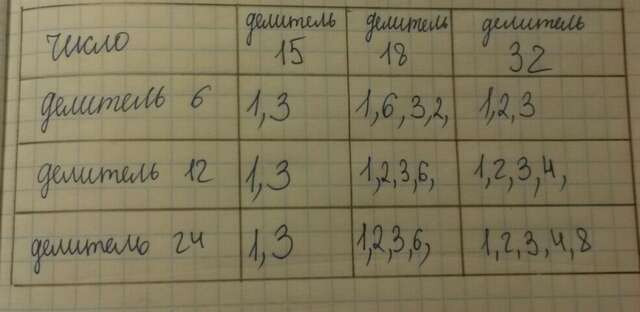 число делитель 15 делитель 18 делитель 32
делитель 6 1,3 1,6,3,2, 1,2,3
делитель 12 1,3 1,2,3,6, 1,2,3,4,
делитель 24 1,3 1,2,3,6, 1,2,3,4,8